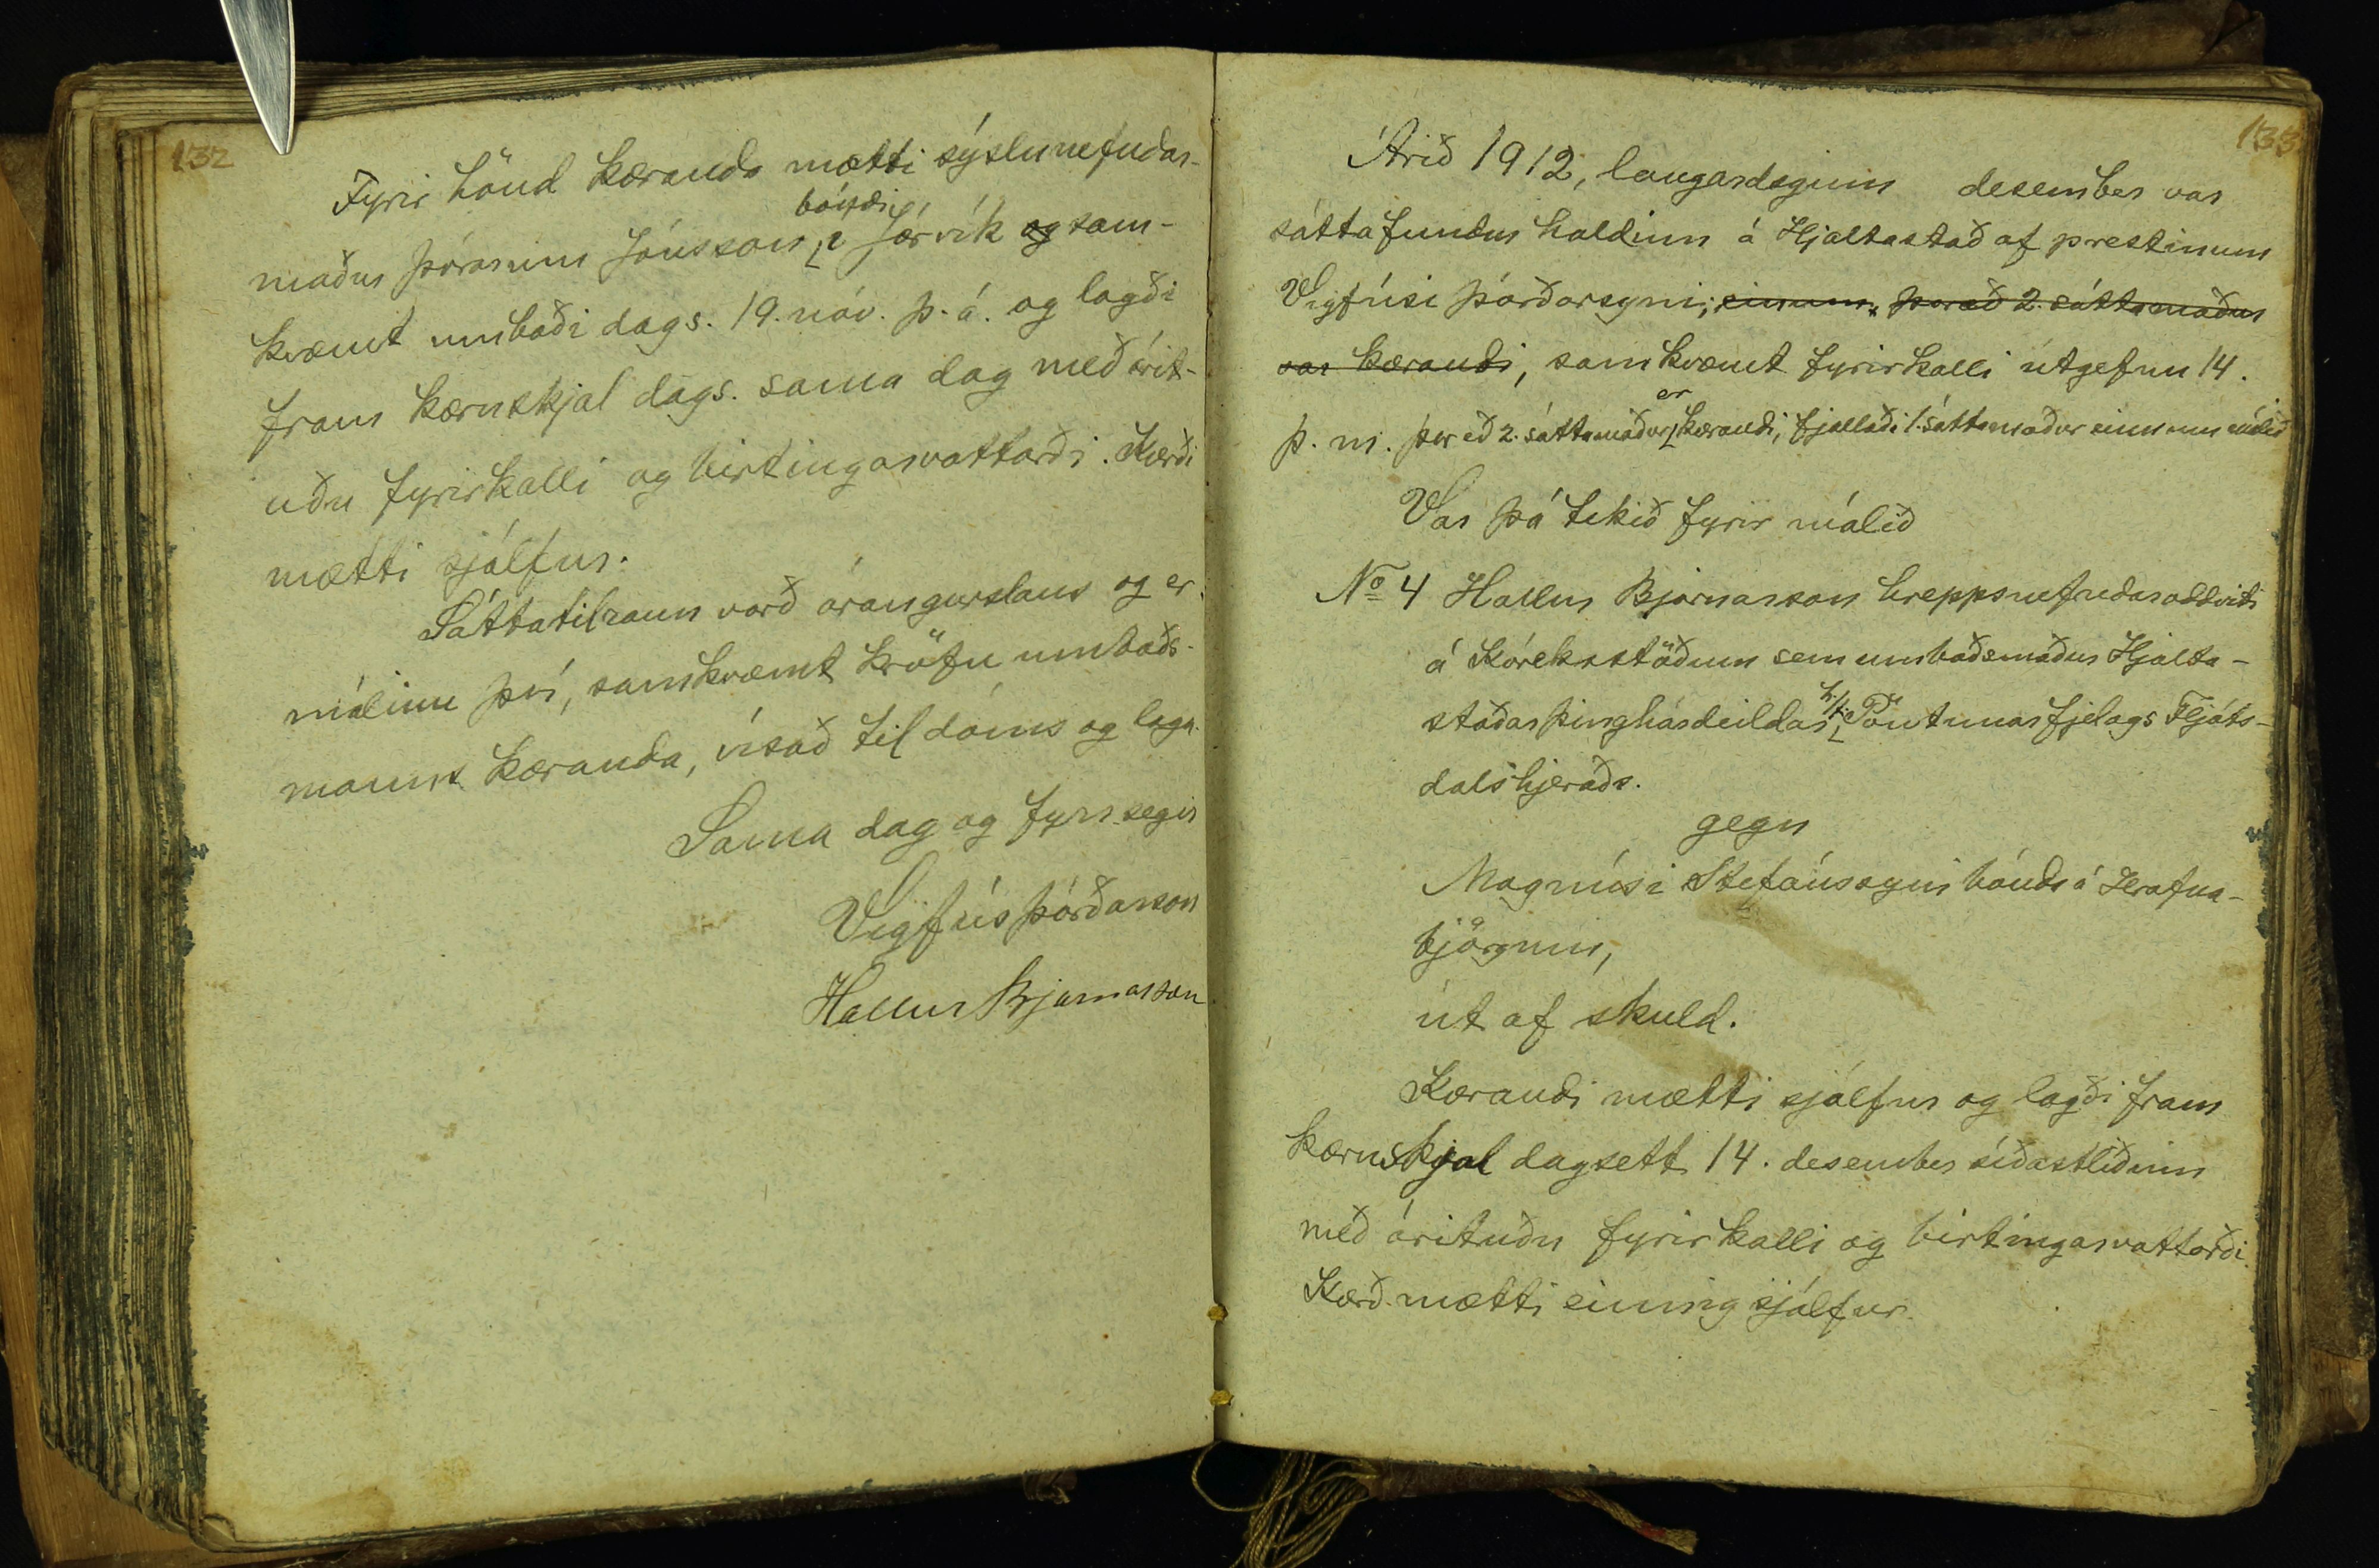 132
Fyrir hönd kæranda mætti sýslunefndar-
maður Þórarinn Jónsson bóndi í Jórvík og sam-
kvæmt umboði dags. 19. nóv. þ. á. og lagði
fram kæruskjal dags. sama dag með árit-
uðu fyrirkalli og birtingarvottorði. Kærði
mætti sjálfur.
Sáttatilraun varð árangurslaus og er
málinu því, samkvæmt kröfu umboðs-
manns kæranda, vísað til dóms og laga.
Sama dag og fyrr segir
Vigfús Þórðarson
Hallur Bjarnarson
133
Árið 1912, laugardaginn desember var
sáttafundur haldinn á Hjaltastað af prestinum
Vigfúsi Þórðarsyni, einum, þar eð 2. sáttamaður
var kærandi, samkvæmt fyrirkalli útgefnu 14.
þ. m. Þar eð 2. sáttamaður er kærandi, fjallaði 1. sáttamaður einn um málið
Var þá tekið fyrir málið
No 4 Hallur Bjarnarson hreppsnefndaroddviti
á Kóreksstöðum sem umboðsmaður Hjalta-
staðarþinghárdeildar h/f Pöntunarfjelags Fljóts-
dalshjeraðs.
gegn
Magnúsi Stefánssyni bónda á Hrafna-
björgum,
út af skuld.
Kærandi mætti sjálfur og lagði fram
kæruskjal dagsett 14. desember síðastliðinn
með árituðu fyrirkalli og birtingarvottorði.
Kærð. mætti einnig sjálfur.